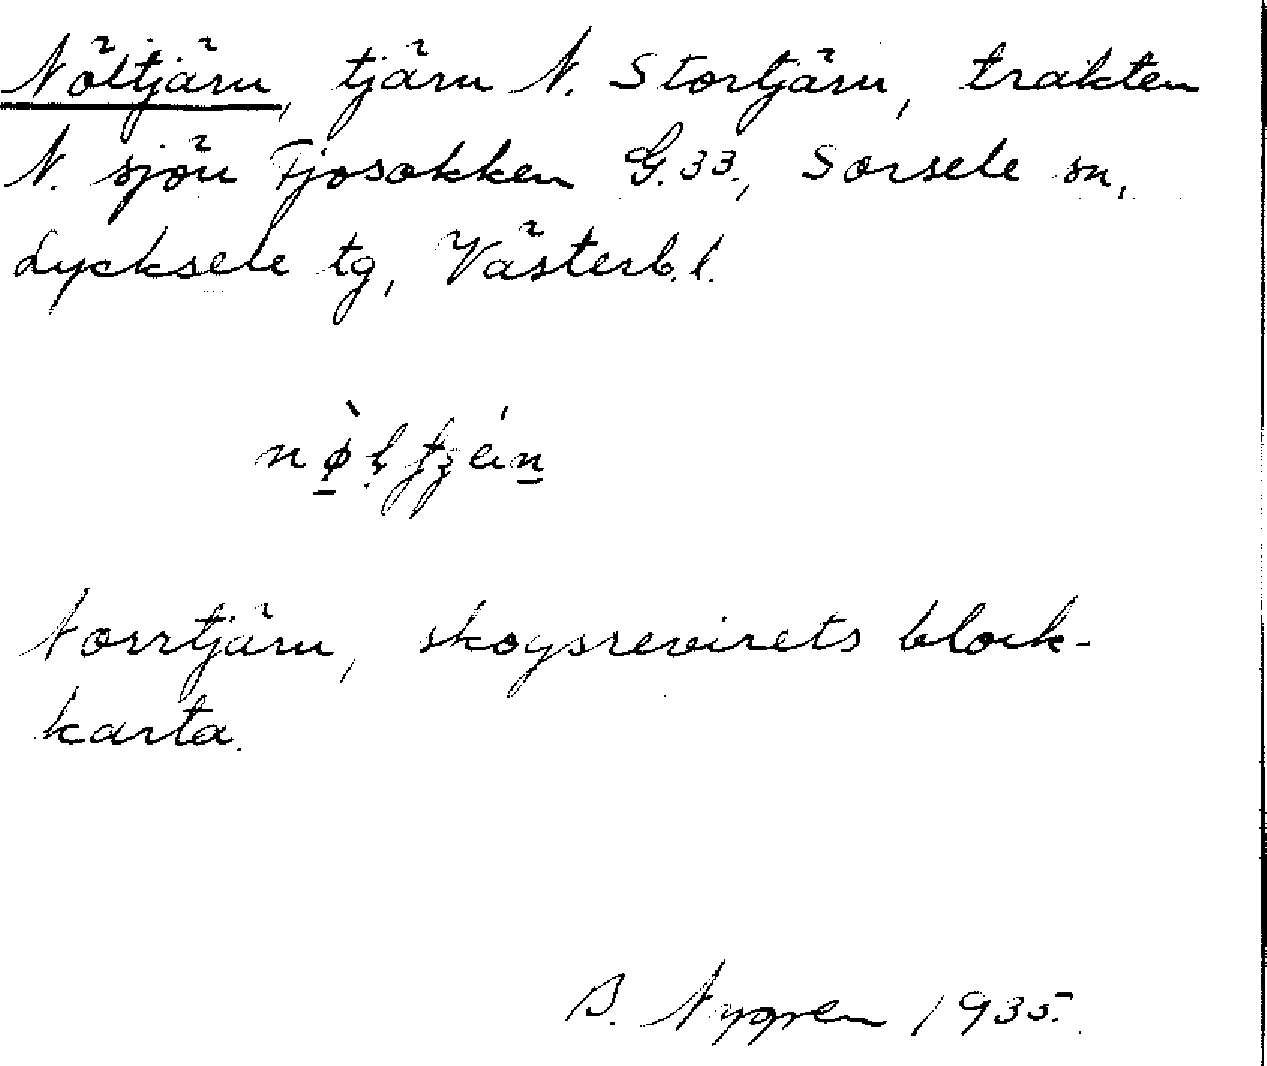 Nöltjärn, tjärn N. Stortjärn, trakten
N. sjön Fjosokken G.33., Sorsele sn,
Lycksele tg, Västerb.l.
Norrtjärn, skogsrevirets block-
karta.
B. Nygren 1935.